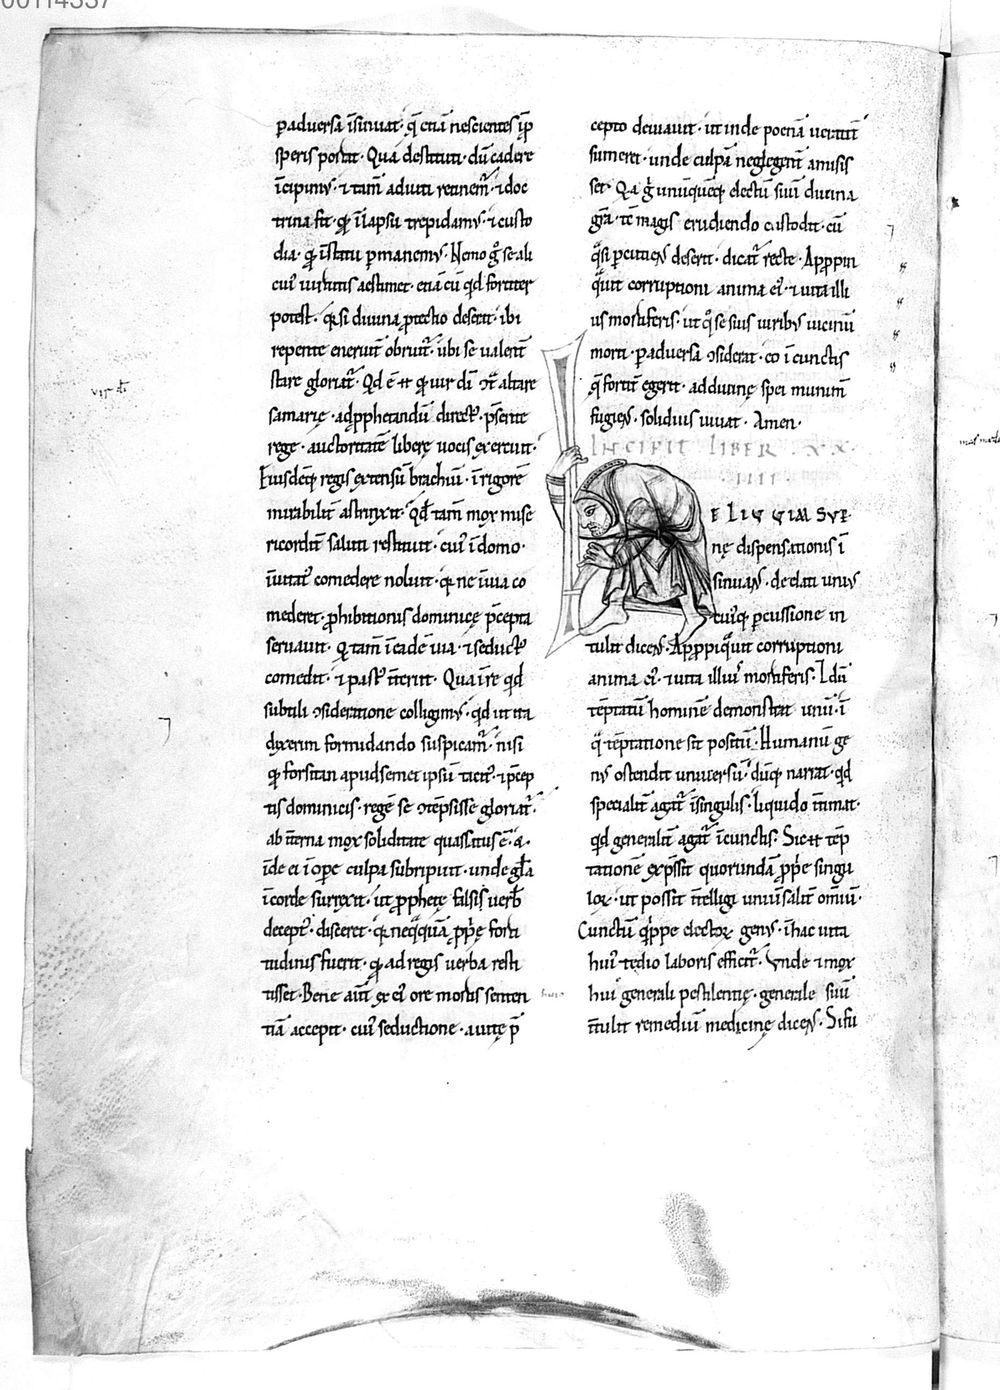 00114337
ꝑ aduersa īsinuat· q̄ etiā nescientes ꝓ
speris portat· Qua destituti· dū cadere
īcipimꝰ· ⁊ tam̄ adiuti retinem̄· ⁊ doc
trina fit· qͥ īlapsu trepidamꝰ· ⁊ custo
dia· qͥ īstatu ꝑmanemꝰ· Nemo gͦ se ali
cuiꝰ uirtutis aestimet· etiā cū qͥd fortiter
potest· qͥ si diuina ꝓtectio deserit· ibi
repente eneruit̄ obruit᷑· ubi se ualent̄
stare gloriat᷑· Qd̄ ē ⁊ qͥ uir dī ↄt᷑ altare
samarię· adꝓphetandū direct᷒· p̄sente
rege· auctoritatē liberę uocis exercuit·
Eiusdēq; regis extensū brachiū· īrigorē
mirabilit̄ astrinxit· Qd̄ tam̄ mox mise
ricordit̄ saluti restituit· cuiꝰ īdomo·
īuitatꝰ comedere noluit· qͥ ne īuia co
mederet· ꝓhibitionis dominicę p̄cepta
seruauit· Qͥ tam̄ īeadē uia· ⁊ seduct᷒
comedit· ⁊ past᷒ īteriit· Qua īre qͥd
subtili ↄsideratione colligimꝰ· qͥd ut ita
dixerim formidando suspicam̄· nisi
qͥ forsitan apud semet ipsū tacitꝰ· ⁊ p̄cep
tis dominicis· regē se ↄtēpsisse gloriat᷑·
ab īterna mox soliditate quassatus ē· ⁊
īde ei īoꝑe culpa subripuit· unde gl̄a
īcorde surrexit· ut ꝓphetę falsis uerb̄
deceptꝰ· disceret· qͥ neqͣquā ꝓpͥę forti
tudinis fuerit· qͥ ad regis uerba resti
tisset· Bene aūt ex eiꝰ ore mortis senten
tiā accepit· cuiꝰ seductione· a uitę p̄
cepto deuiauit· ut inde poenā ueritat̄
sumeret· unde culpā neglegent̄ amisis
set· Qa gͦ unūquēq; electū suū diuina
gr̄a· tē magis erudiendo custodit· cū
qͣsi ꝑcutiens deserit· dicat᷑ recte· Apꝓpin
qͣuit corruptioni anima eiꝰ· ⁊ uita illi
us mortiferis· ut qͦ se suis uiribꝰ uicinū
morti· ꝑ aduersa ↄsiderat· eo īcunctis
q̄ fortit̄ egerit· ad diuinę spei munim̄
fugiens· solidius uiuat· Amen·
INCIPIT LIBER XX·
IIII
ELIQUIAM SUPE
nę dispensationis ī
sinuans· de elati unius
cuiꝰq; ꝑcussione in
tulit dicens· Apꝓpiqͣuit corruptioni
anima eiꝰ· ⁊ uita illiuꝰ mortiferis· Id dū
tēptatū hominē demonstrat unū· ī
qͣ tēptatione sit positū· Humanū ge
nꝰ ostendit uniuersū· dūq; narrat qͥd
specialit̄ agat᷑ īsingulis· liquido ītimat·
qͥd generalit̄ agat᷑ īcunctis· Sic ⁊ tēp
tationē exp̄ssit quorundā ꝓpͥe singu
lorꝝ· ut possit ītelligi uniuersalit̄ omniū·
Cunctū qͥppe electorꝝ genꝰ· ī hac uita
huiꝰ tedio laboris efficit᷑· Vnde ⁊ mox
huic generali pestilentię· generale suū
ītulit remediū medicinę dicens· Si fu